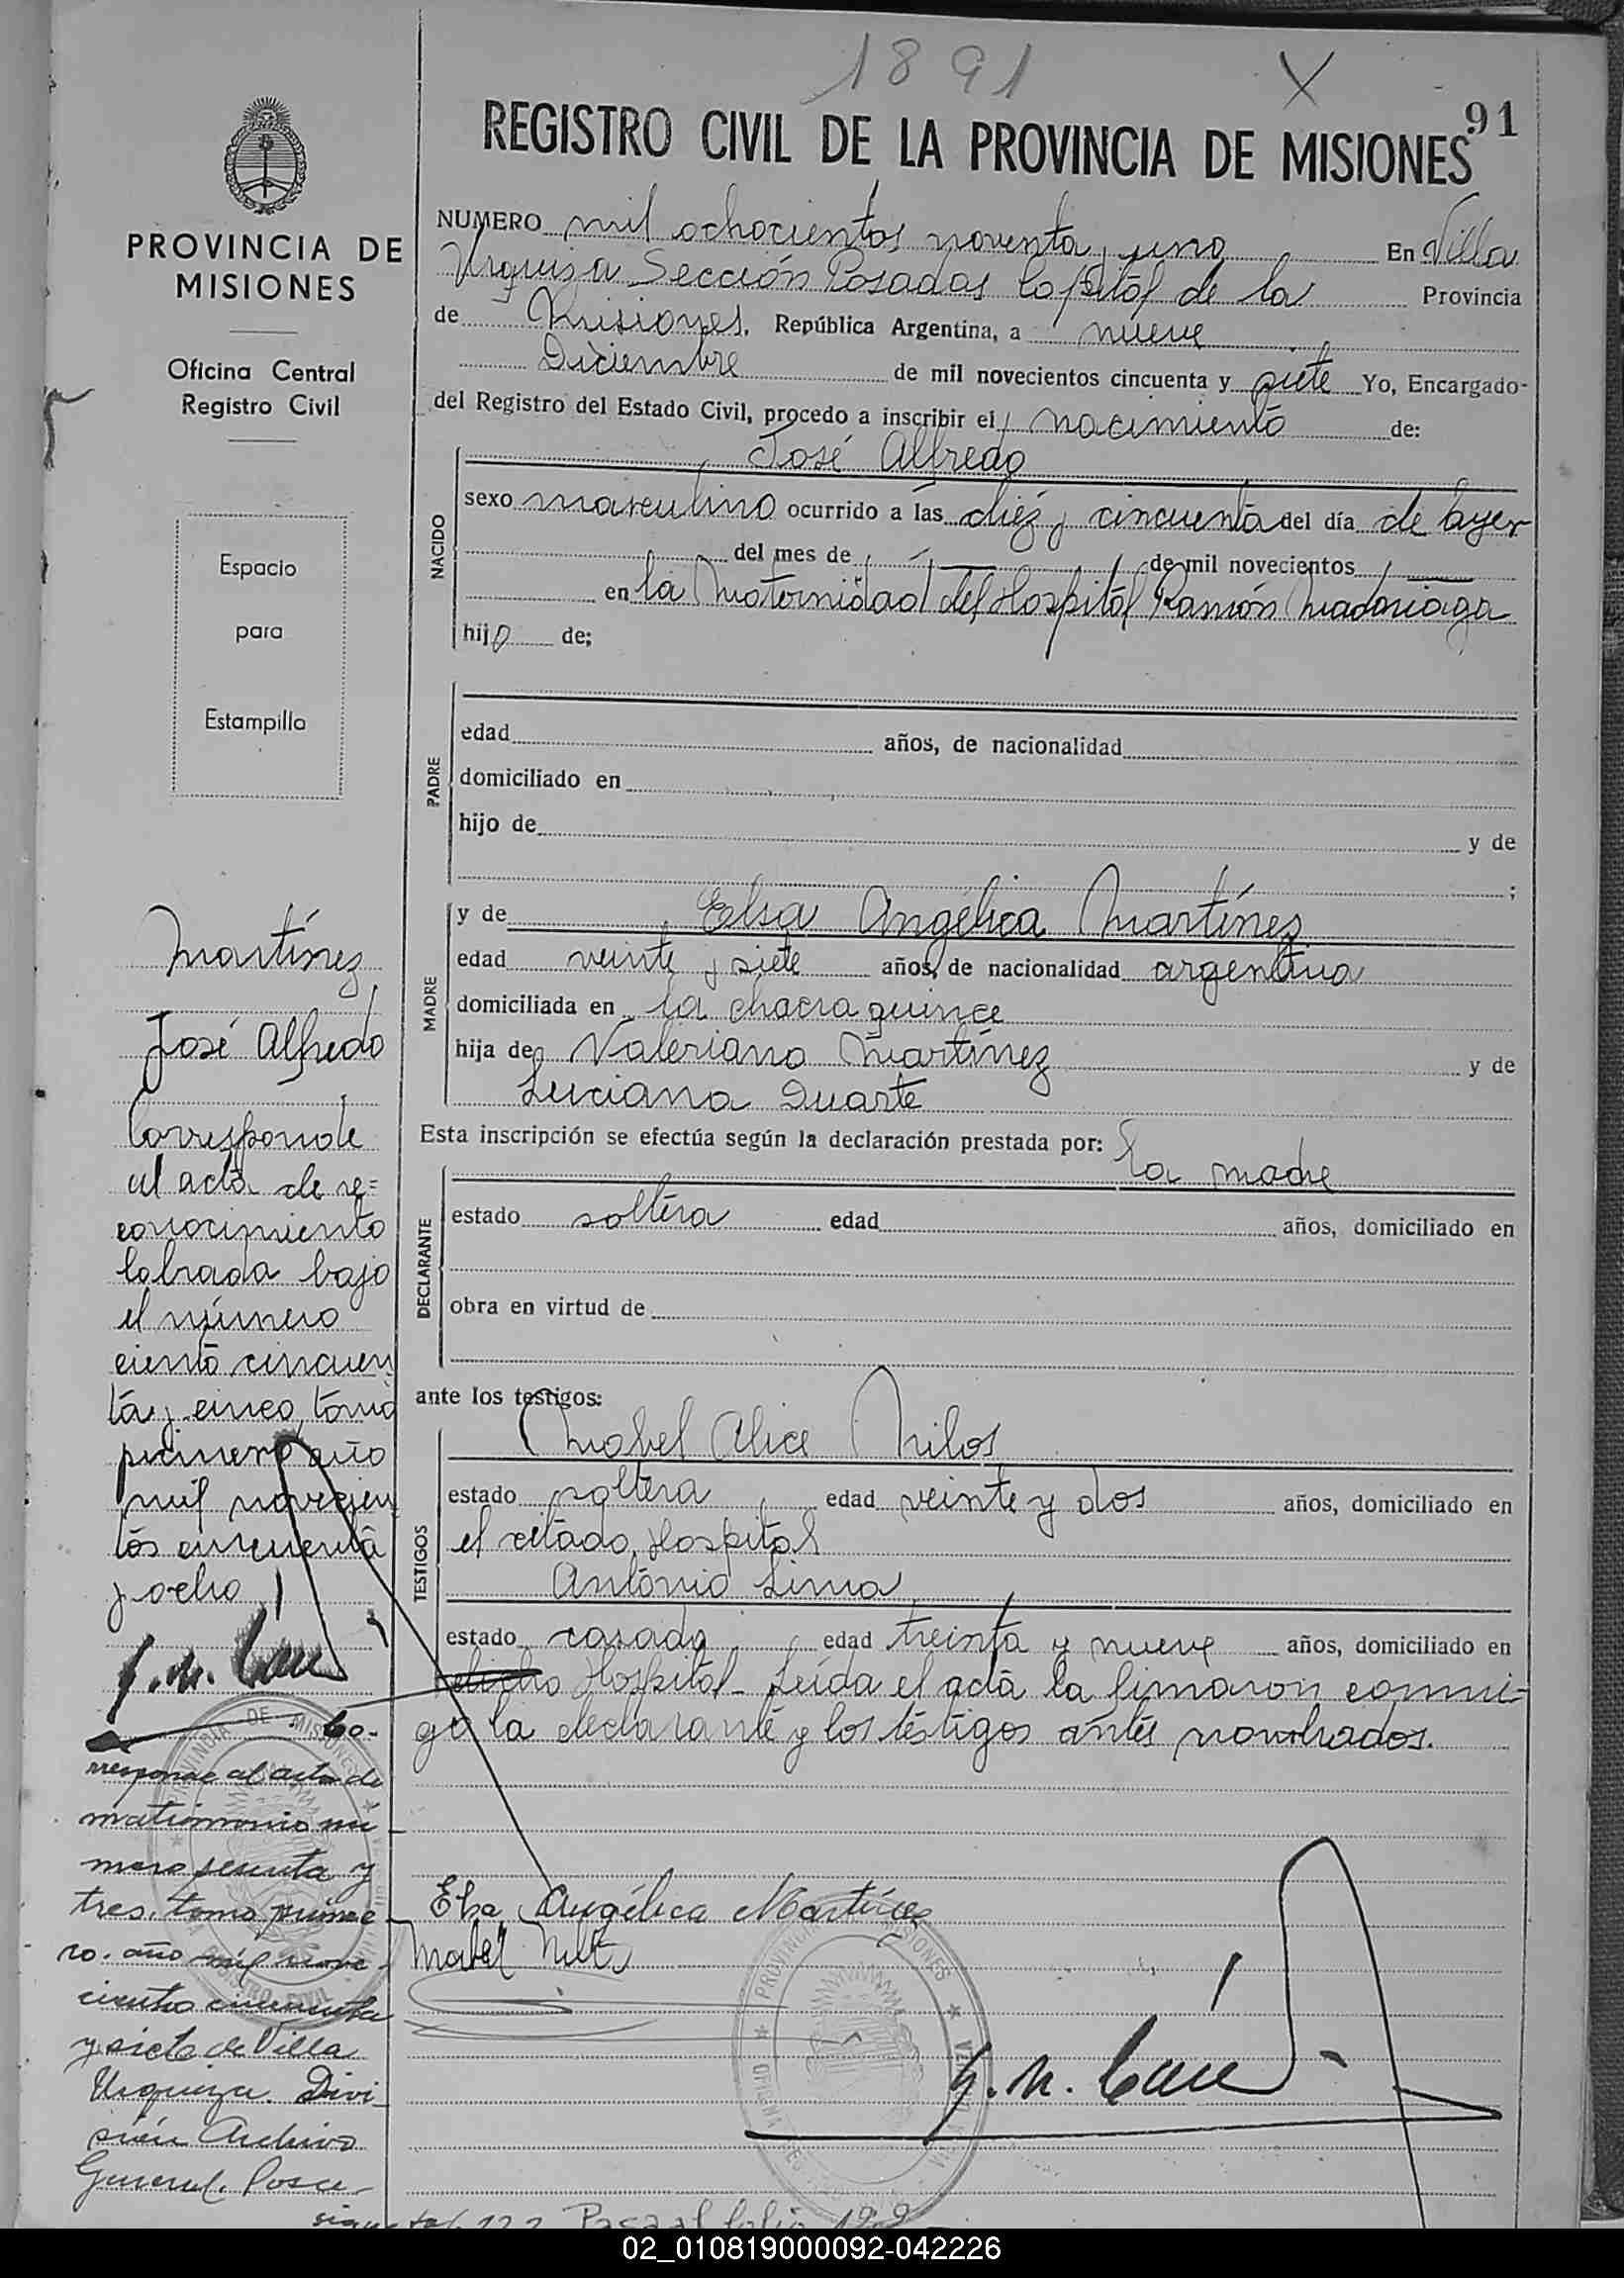 1891
X
91
REGISTRO CIVIL DE LA PROVINCIA DE MISIONES
PROVINCIA DE
MISIONES
Oficina Central
Registro Civil
Espacio
para
Estampilla
NUMERO mil ochocientos noventa y uno En Villa
Urquiza Sección Posadas Capital de la Provincia
de Misiones, República Argentina, a nueve
Diciembre de mil novecientos cincuenta y siete Yo, Encargado
del Registro del Estado Civil, procedo a inscribir el nacimiento de:
NACIDO
José Alfredo
sexo masculino ocurrido a las diéz y cincuenta del día de ayer
del mes de de mil novecientos
en la Maternidad del Hospital Ramón Madariaga
hijo de;
PADRE
edad años, de nacionalidad
domiciliado en
hijo de y de
;
MADRE
y de Elsa Angélica Martínez
edad veinte y siete años, de nacionalidad argentina
domiciliada en la chacra quince
hija de Valeriano Martínez y de
Luciana Duarte
Esta inscripción se efectúa según la declaración prestada por: La madre
DECLARANTE
estado soltera edad años, domiciliado en
obra en virtud de
ante los testigos:
TESTIGOS
Mabel Alice
estado soltera edad veinte y dos años, domiciliado en
el citado Hospital
Antonio Lima
estado casado edad treinta y nueve años, domiciliado en
dicho Hospital - Leída el acta la firmaron conmi-
go la declarante y los testigos antes nombrados.
Elsa Angélica Martínez
Mabel
Martínez
José Alfredo
Corresponde
al acta de re=
conocimiento
labrada bajo
el número
ciento cincuen
ta y cinco, tomo
primero año
mil novecien
tos cincuenta
y ocho
Co-
rresponde al acta de
matrimonio nú
mero sesenta y
tres, tomo prime
ro. año mil nove
cientos cincuenta
y siete de Villa
Urquiza. Divi
sión Archivo
General. Posa
Pasa al folio
02_010819000092-042226